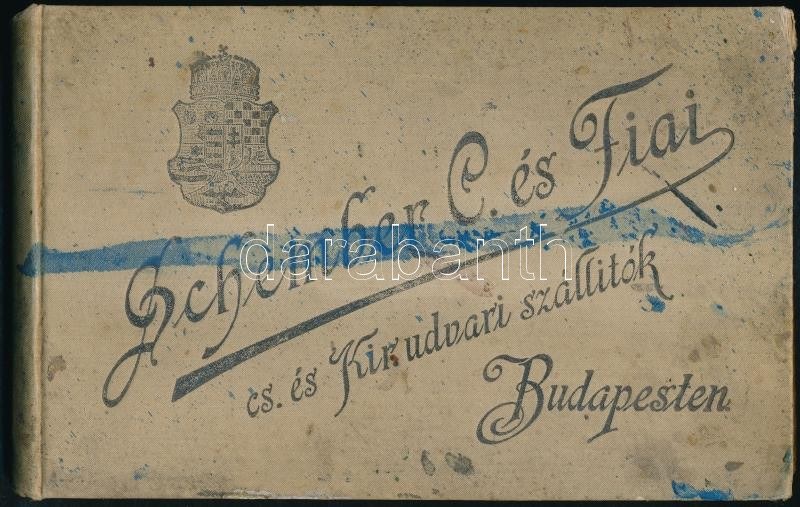 Schember C. és Fiai
darabanth
cs. és Kir. udvari szállitók
Budapesten.